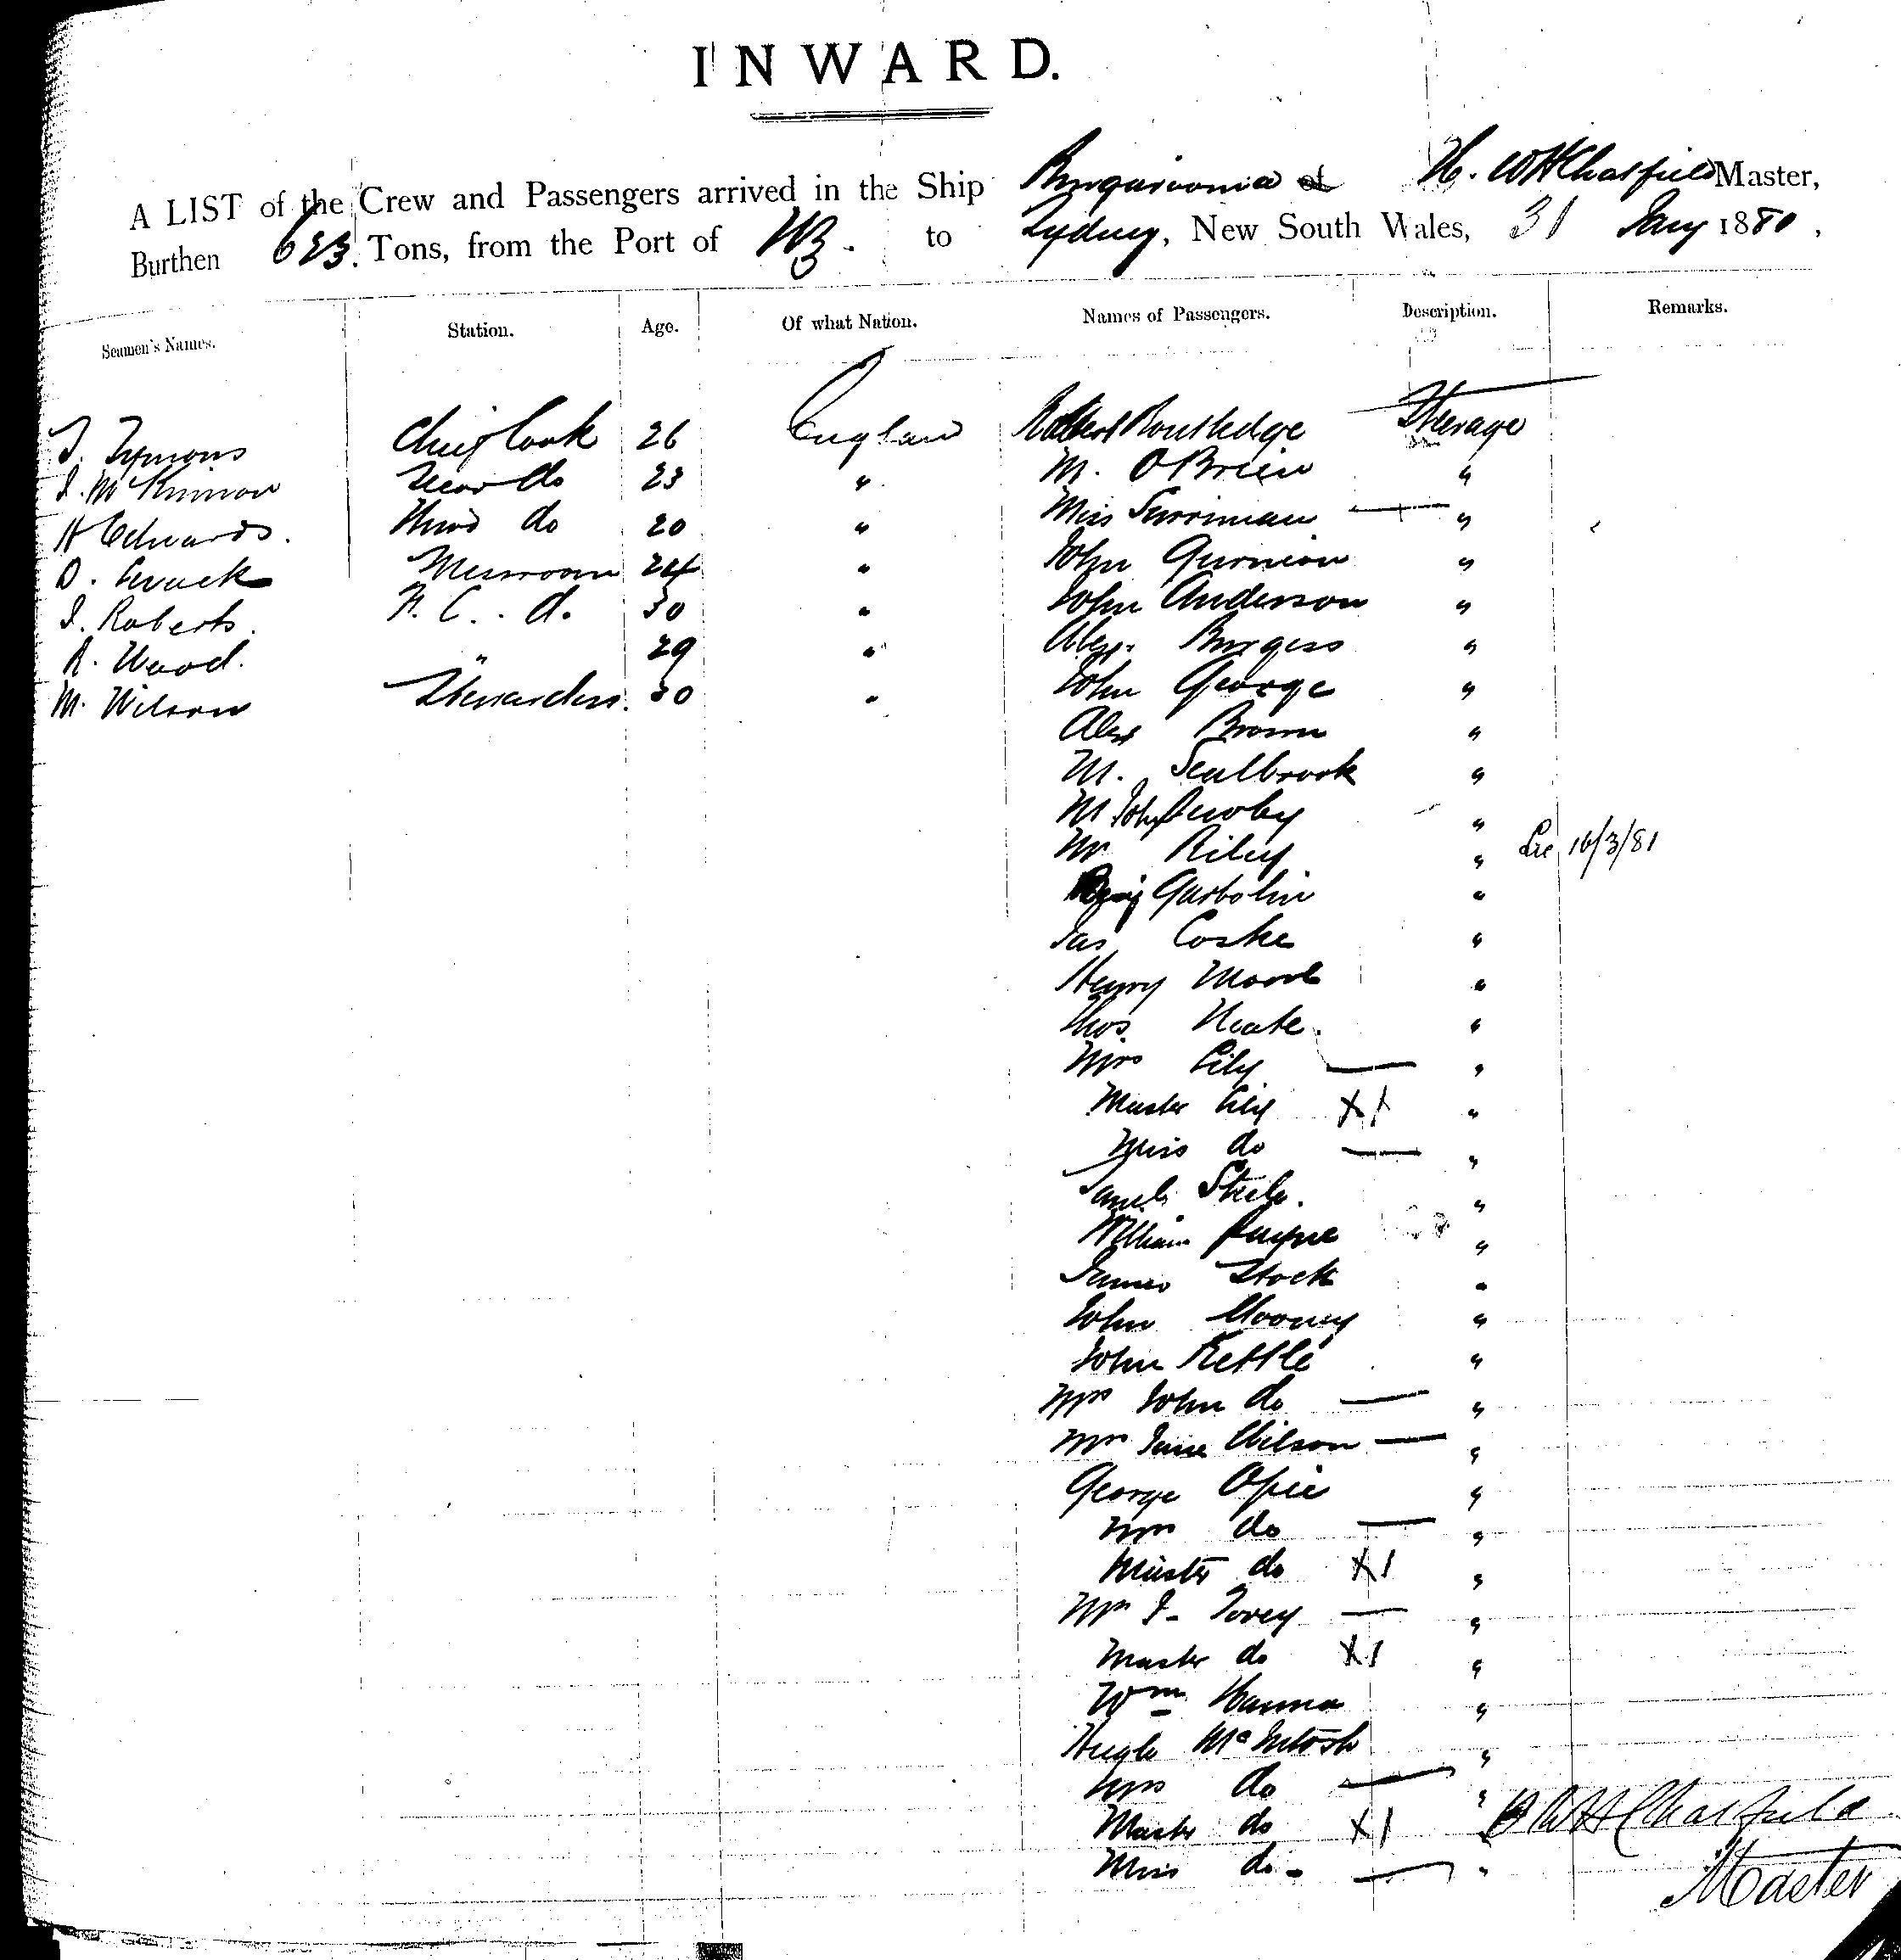 INWARD.
A LIST of the Crew and Passengers arrived in the Ship of H. WHChatfield Master,
Burthen 623. Tons, from the Port of NZ. to Sydney, New South Wales, 31 Jany 1880,
Seamen's Names. Station. Age. Of what Nation. Names of Passengers. Description. Remarks.
Chief Cook 26 England Robert Routledge Steerage
J. McKinnon Second do 23 " M. OBrien "
H Edwards. Third do 20 " Miss "
D. Messroom 24 " John "
J. Roberts. F. C. . d. 30 " John Anderson "
R. Wood. " 29 " Burgess "
M. Wilson Stewardess. 30 " John George "
Alex Brown "
M. Sealbrook "
M John "
Mr Riley " 16/3/81
"
Jas "
Henry "
Thos. "
Mrs Lily "
Master Lily X1 "
Miss do "
Steele. "
William Payne "
James Stock "
John Mooney "
John Kettle "
Mrs John do "
Mrs Jane Wilson "
George Opie "
Mrs do "
Master do X1 "
Mrs J. Tovey "
Master do X1 "
Wm Hanna "
Hugh McIntosh "
Mrs do "
Master do X1 " WHChatfield
Miss do "
Master